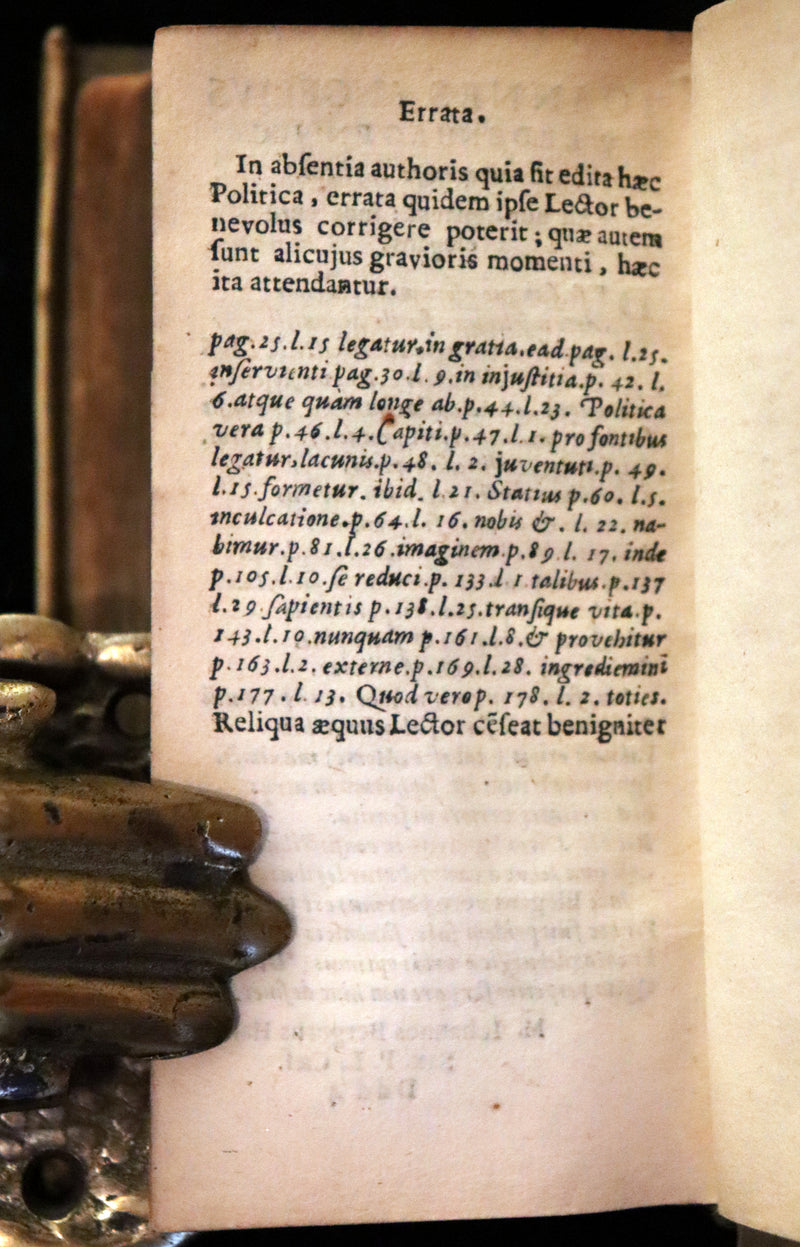 Errata.
In abſentia authoris quia ſit edita hæc
Politica, errata quidem ipſe Lector be-
nevolus corrigere poterit; quæ autem
ſunt alicujus gravioris momenti, hæc
ita attendantur.
pag.25.l.15 legatur,in gratia.ead.pag. l.25.
inſervienti pag.30.l.9.in injuſtitia.p. 42. l.
6.atque quàm longe ab.p.44.l.23. Politica
vera p.46.l.4.Capiti.p.47.l.1. pro fontibus
legatur,lacunis.p.48. l. 2. juventuti.p. 49.
l.15.formetur. ibid. l 21. Statius p.60. l.5.
inculcatione.p.64.l. 16. nobis &. l. 22. na-
bimur.p.81.l.26.imaginem.p.89 l. 17. inde
p.105.l.10.ſe reduci.p. 133.l 1 talibus.p.137
l.29 ſapientis p.138.l.25.tranſique vita.p.
143.l.10.nunquam p.161.l.8.& provehitur
p.163.l.2. externe.p.169.l.28. ingrediemini
p.177.l 13. Quod vero p. 178. l. 2. toties.
Reliqua æquus Lector cēſeat benigniter